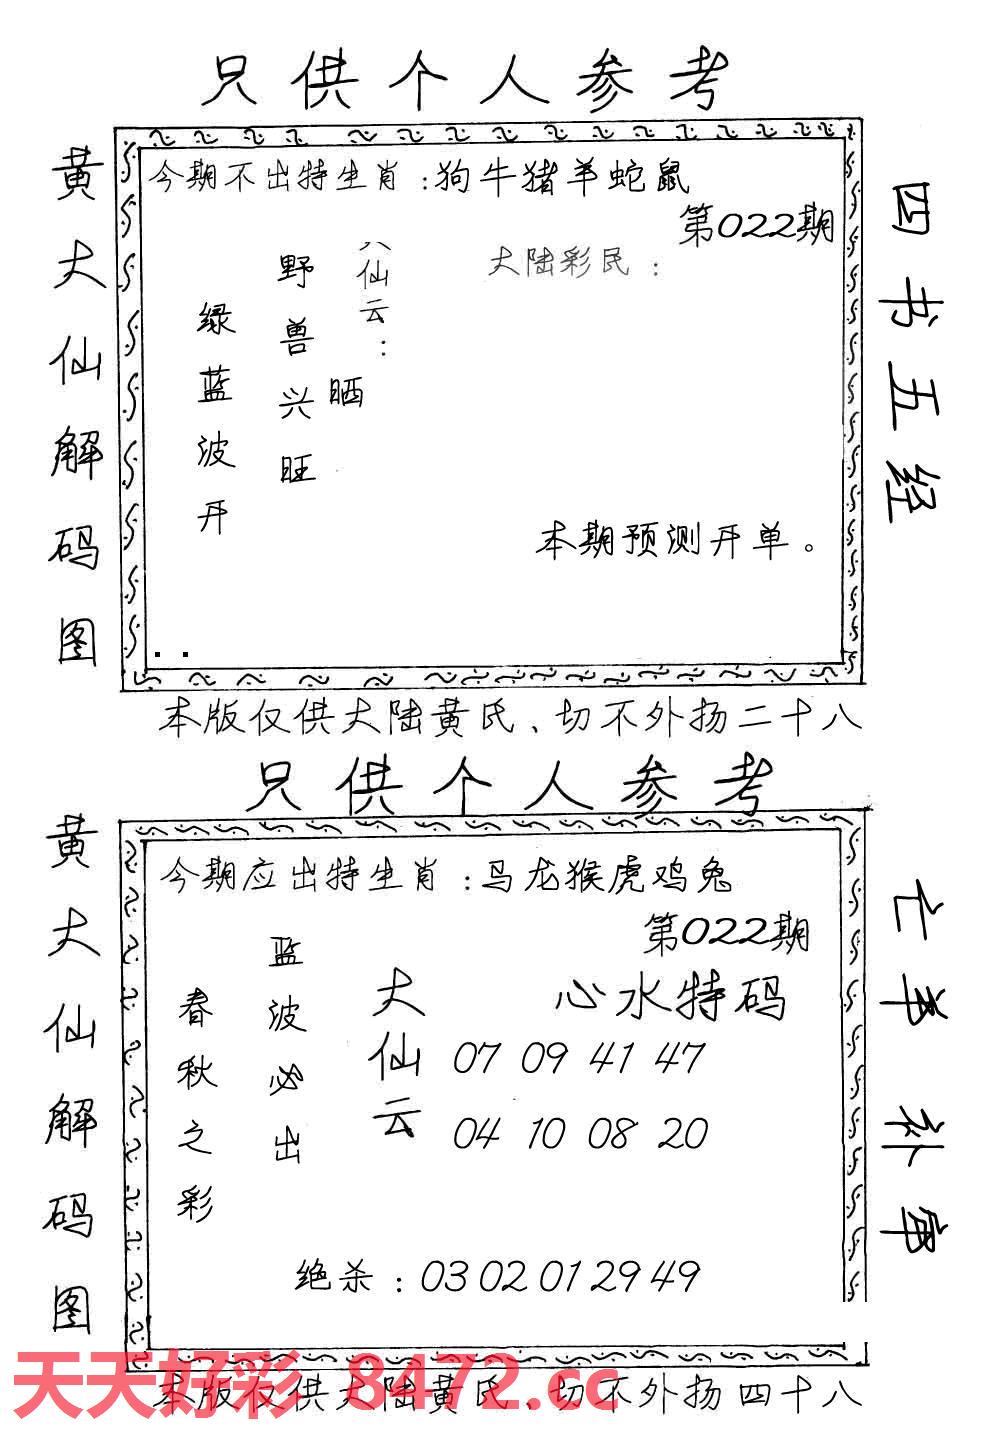 只供个人参考
黄大仙解码图
今期不出特生肖:狗牛猪羊蛇鼠
第022期
大陆彩民:
仙云:
晒
野兽兴旺
绿蓝波开
本期预测开单。
四书五经
本版仅供大陆黄氏、切不外扬二十八
只供个人参考
黄大仙解码图
今期应出特生肖:马龙猴虎鸡兔
第022期
心水特码
大仙云
07 09 41 47
04 10 08 20
蓝波必出
春秋之彩
绝杀:03 02 01 29 49
亡羊补牢
天天好彩 8472.cc
本版仅供大陆黄氏、切不外扬四十八